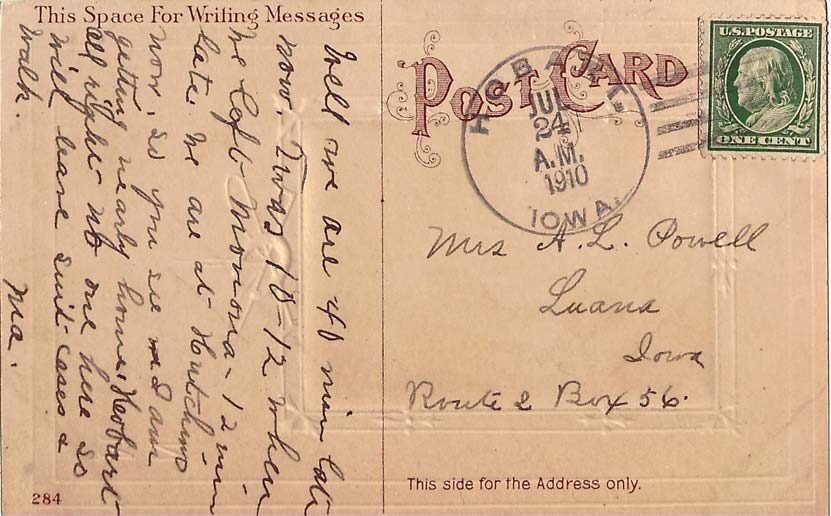 This Space For Writing Messages
Well we are 40 min late
now. Twas 10-12 when
we left Monona - 12 min
late. We are at Hutchins
now, so you see we I am
getting nearly home. Hobart
all right no one here so
will leave suit cases &
walk.
Ma.
284
POST CARD
HOBART.
JUL
24
A.M.
1910
IOWA.
U.S. POSTAGE
ONE CENT
Mrs A. L. Powell
Luana
Iowa
Route 2 Box 56.
This side for the Address only.